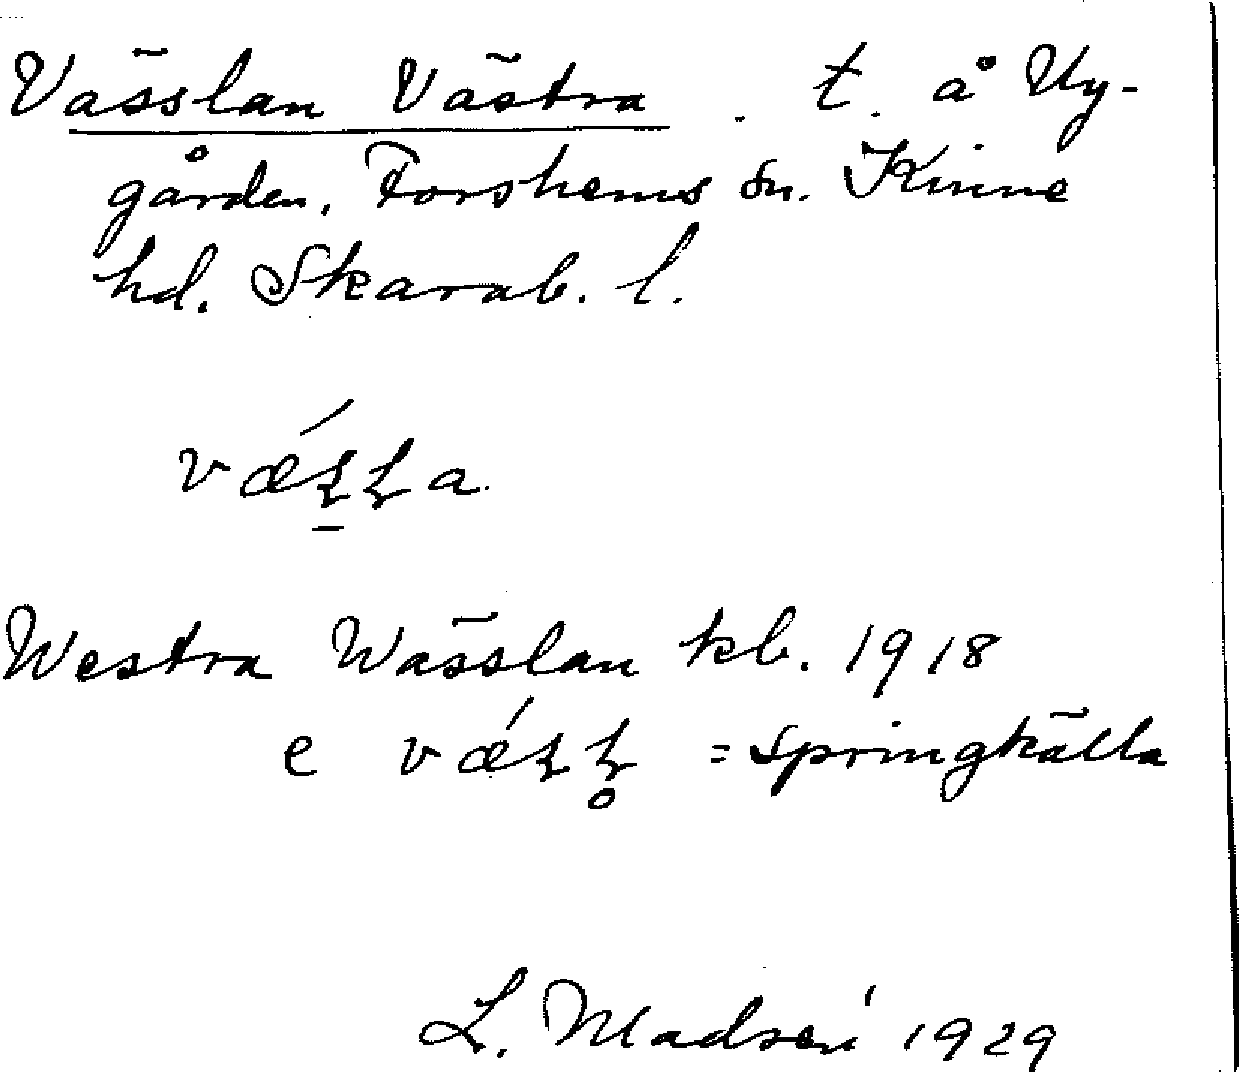 Vässlan Västra. t. å Uy-
gården, Forshems sn. Kinne
hd. Skarab. l.
Westra Wässlan kb. 1918
e = springkälla
L. Madsén 1929